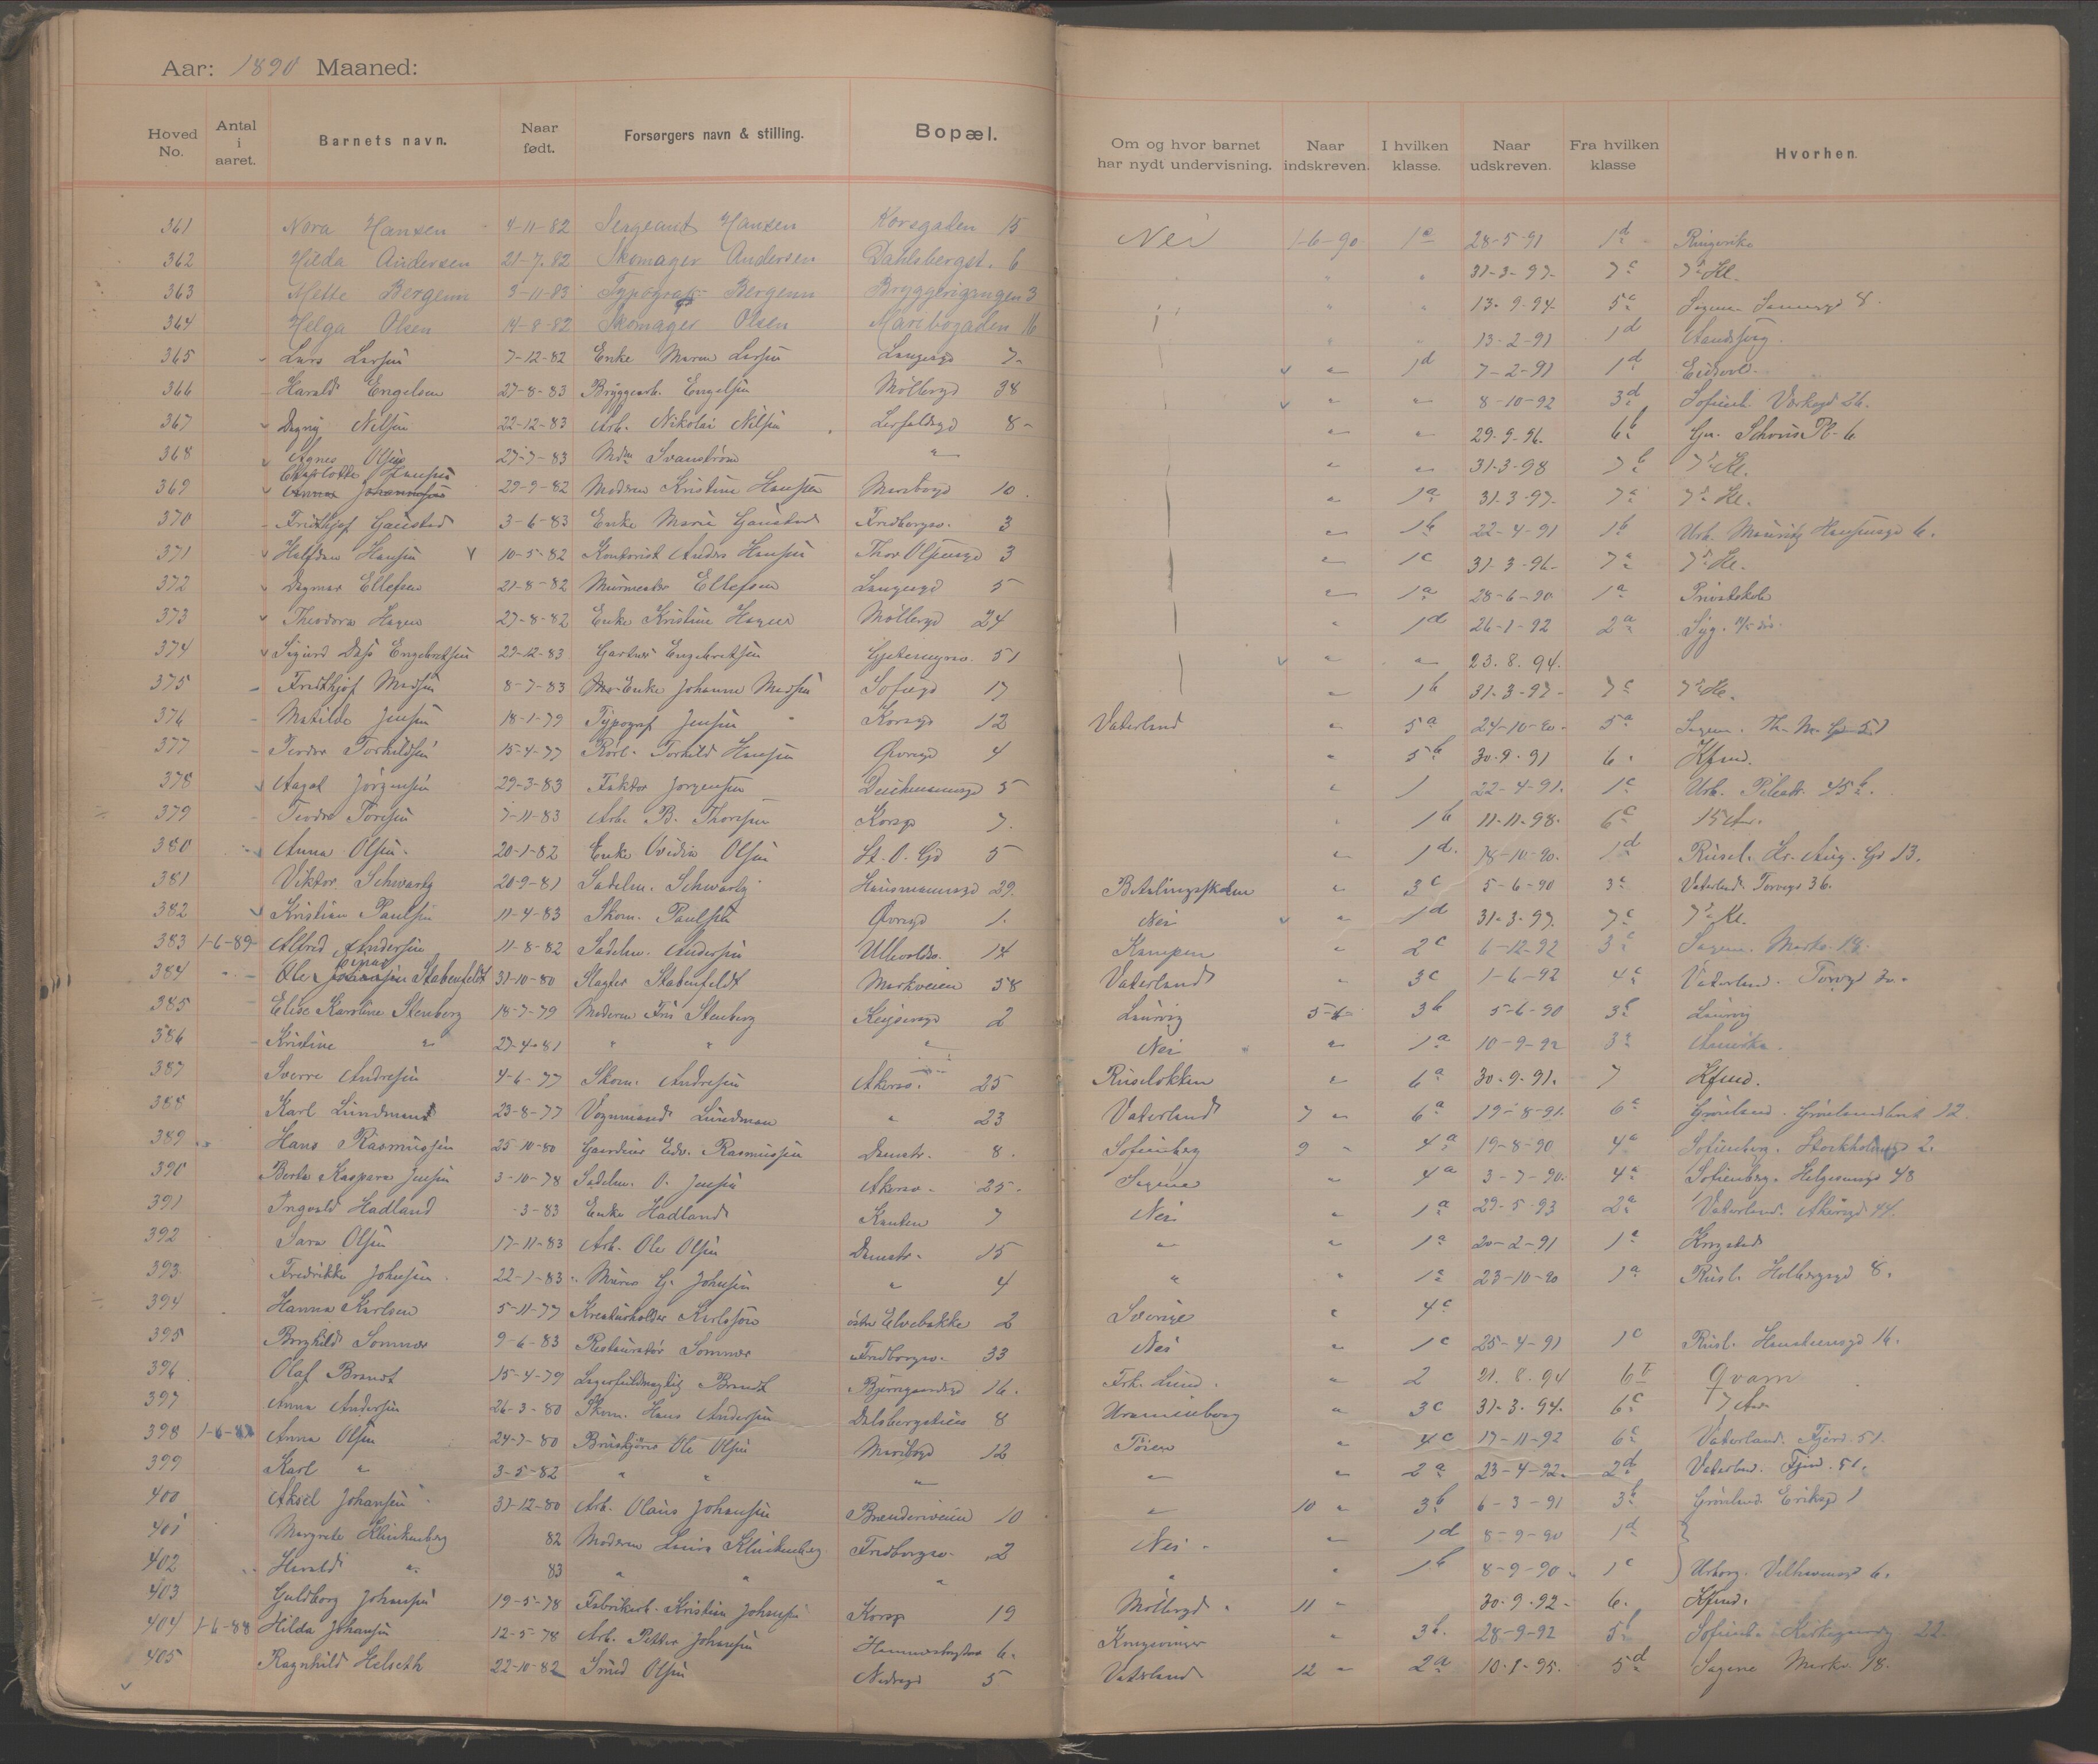 Aar: 1890 Maaned:
Hoved No. Antal i aaret. Barnets navn. Naar født. Forsørgers navn & stilling. Bopæl. Om og hvor barnet har nydt undervisning. Naar indskreven. I hvilken klasse. Naar udskreven. Fra hvilken klasse Hvorhen.
361 Nora Hansen 4-11-82 Sergeant Hansen Korsgaden 15 Nei 1-6-90 1a 28-5-91 1d Ringerike
362 Hilda Andersen 21-7-82 Skomager Andersen Dahlsbergst. 6 " " 31-3-97 7c 7de Kl.
363 Mette Bergenn 3-11-83 Typograf Bergenn Bryggerigangen 3 " " 13-9-94 5c 8
364 Helga Olsen 14-8-82 Skomager Olsen Maribogaden 16 " " 13-2-91 1d
365 Lars Larsen 7-12-82 Enke Maren Larsen Langesgd 7 " 1d 7-2-91 1d Eidsvold
366 Harald Engelsen 27-8-83 Bryggearb. Engelsen Møllergd 38 " " 8-10-92 3d Sofienb. Verksgd 26.
367 Dagny Nilsen 22-12-83 Arb. Nikolai Nilsen Lerfaldsgd 8 " " 29-9-96 6b Gr. Schous Pl. 6
368 Agnes Olsen 27-7-83 Mdm Svanstrøm " " " 31-3-98 7b 7de Kl.
369 Charlotte Hansen 29-9-82 Moderen Kristine Hansen Maribogd 10 " 1a 31-3-97 7a 7de Kl.
370 Fridthjof Gaustad 3-6-83 Enke Marie Gaustad Fredborgsv. 3 " 1b 22-4-91 1b Ur. Mauritz Hansensgd 6.
371 Halfdan Hansen 10-5-82 Kontorist Anders Hansen Thor Olsensgd 3 " 1c 31-3-96 7a 7de Kl.
372 Dagmar Ellefsen 21-8-82 Murmester Ellefsen Langesgd 5 " 1a 28-6-90 1a Privatskole
373 Theodora Hagen 27-8-82 Enke Kristine Hagen Møllergd 24 " 1d 26-1-92 2a Syg.
374 Sigurd Engebretsen 29-12-83 Gartner Engebretsen Gjetemyrsv. 51 " " 23.8.94.
375 Fridthjof Madsen 8-7-83 Enke Johanne Madsen Sofiegd 17 " 1b 31-3-97 7c 7de Kl.
376 Matilde Jensen 18-1-79 Typograf Jensen Korsgd 12 Vaterland " 5a 24-10-90 5a Sagene. Th. M. Gd 51
377 Teodor Torkildsen 15-4-77 Rørl. Torkild Hansen Øvregd 4 " 5b 30-9-91 6. Kfmd.
378 Aagot Jørgensen 29-3-83 Faktor Jørgensen Deichmansgd 5 " 1 22-4-91. 1c Ur. Pilestr. 45b.
379 Teodor Toresen 7-11-83 Arb. B. Thoresen Korsgd 7. " 1b 11-11-98. 6c 15 Aar.
380 Anna Olsen 20-1-82 Enke Ovidia Olsen St. O. Gd 5 " 1d. 18-10-90. 1d Rusel. Kr. Aug. Gd 13.
381 Viktor Schwartz 20-9-81 Sadelm. Schwartz Hausmannsgd 29. Betalingsskolen " 3c 5-6-90 3c Vaterland. Torvgd 36.
382 Kristian Paulsen 11-4-83 Skom. Paulsen Øvregd 1. Nei " 1d 31-3-97. 7c 7de Kl.
383 1-6-89 Alfred Andersen 11-8-82 Sadelm. Andersen Ullevoldsv. 14 Kampen " 2c 6-12-92 3c Sagene. Markv. 18.
384 Ole Einar Stabenfeldt 31-10-80 Slagter Stabenfeldt Markveien 58 Vaterland " 3c 1-6-92 4c Vaterland. Torvgd
385 Elise Karoline Stenberg 18-7-79 Moderen Frü Stenberg Keysersgd 2 Laurvig 5-6- 3b 5-6-90 3b Laurvig
386 Kristine " 27-4-81 " " " Nei " 1a 10-9-92 3a Amerika.
387 Sverre Andresen 4-6-77 Skom. Andresen Akersv. 25 Ruseløkken " 6a 30-9-91. 7 Kfmd.
388 Karl Lundman 23-8-77 Vognmand Lundman " 23 Vaterland 7 " 6a 19-8-91. 6c Grønland. 12.
389 Hans Rasmussen 25-10-80 Gaardeier Edv. Rasmussen Damstr. 8. Sofienberg 9 " 4a 19-8-90 4a Sofienberg. Stockholmsgd 2.
390 Berta Kaspara Jensen 3-10-78 Sadelm. O. Jensen Akersv. 25. Sagene " 4a 3-7-90. 4a Sofienberg. Helgesensgd 48
391 Ingvald Hadland -3-83 Enke Hadland Kanten 7 Nei " 1a 29-5-93 2a Vaterland. Akersgd 44.
392 Sara Olsen 17-11-83 Arb. Ole Olsen Damstr. 15 " " 1a 20-2-91 1a
393 Fredrikke Johnsen 22-1-83 Murer G. Johnsen " 4 " " 1a 23-10-90 1a Rusl. Holbergsgd 8.
394 Hanna Karlsen 5-11-77 Kreaturholder Karlsson østre Elvebakke 2 Sverige " 4c
395 Borghild Sommer 9-6-83 Restauratør Sommer Fredborgsv. 33 Nei " 1c 25-4-91 1c Rusl. 16.
396 Olaf Brandt 15-4-79 Brandt Bjerregaardsgd 16. Frk. Lund. " 2 21.8.94 6b Qvam
397 Anna Andersen 26-3-80 Skom. Hans Andersen Dalsbergstien 8 Uranienborg " 3c 31-3-94. 6c 7 Aar
398 Anna Olsen 24-7-80 Ole Olsen Maribogd 12 Tøien " 4c 17-11-92 6c Vaterland. Fjerd. 51.
399 Karl " 3-5-82 " " " " " 2a 23-4-92. 2d Vaterland. Fjerd. 51.
400 Aksel Johansen 31-12-80 Arb. Olaus Johansen Brænderiveien 10 " 10 " 3b 6-3-91 3b Grønland Eriksgd 1
401 Margrete Klinkenberg 82 Moderen Laura Klinkenberg Fredborgsv. 2 Nei " 1d 8-9-90 1d
402 Harald " 83 " " " " " 1b 8-9-90 1c Urborg. Vilhelmsgd 6.
403 Guldborg Johansen 19-5-78 Fabrikarb. Kristian Johansen Korsgd 19 Møllergd 11 " 30-9-92 6. Kfmd.
404 1-6-88 Hilda Johansen 12-5-78 Arb. Petter Johansen 6. Kongsvinger " 3b. 28-9-92 5b Sofienb. Kirkegaardsg 22
405 Ragnhild Helseth 22-10-82 Olsen Nedregd 5 Vaterland 12 " 2a 10-1-95. 5d Sagene Markv. 18.